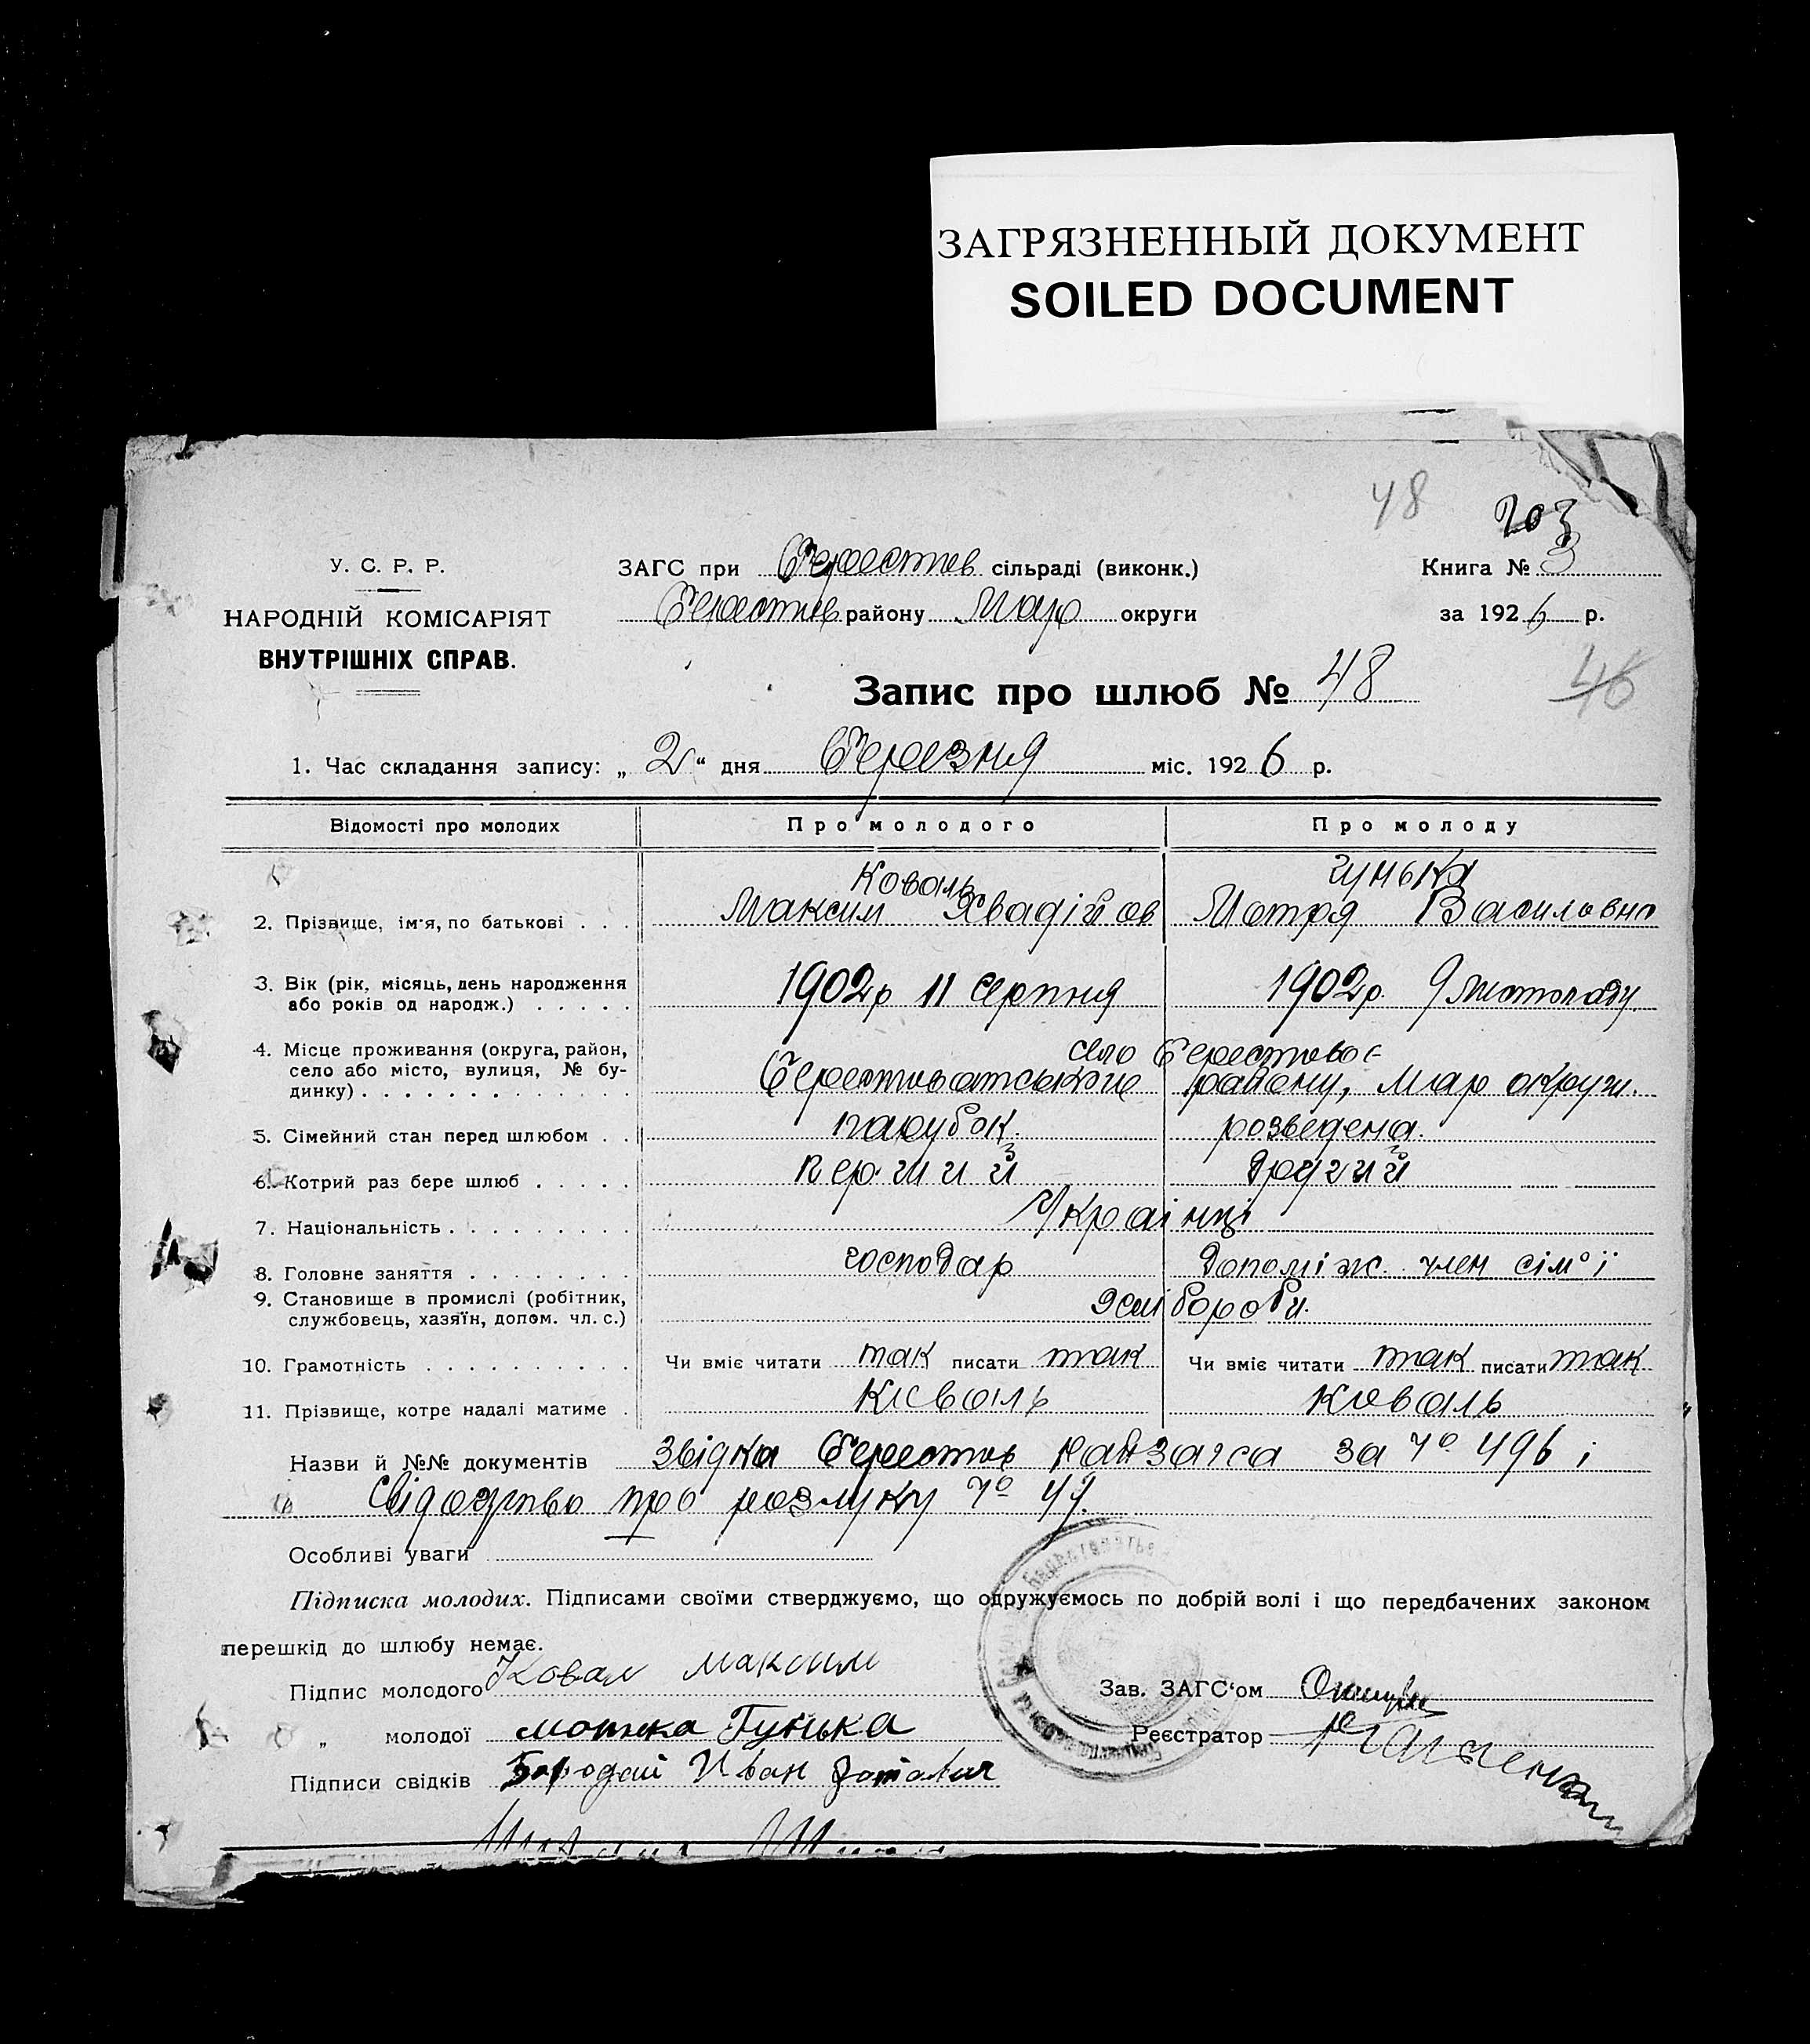 ЗАГРЯЗНЕННЫЙ ДОКУМЕНТ
SOILED DOCUMENT
48
203
У. С. Р. Р.
НАРОДНІЙ КОМІСАРІЯТ
ВНУТРІШНІХ СПРАВ.
ЗАГС при Берестов сільраді (виконк.)
Берестов району Мар округи
Книга № 3
за 1926 р.
46
Запис про шлюб № 48
1. Час складання запису: „ 2 “ дня Березня міс. 1926 р.
Відомості про молодих Про молодого Про молоду
Коваль Гунька
2. Прізвище, ім'я, по батькові . . . Максим Явадійов Мотря Василовно
3. Вік (рік, місяць, день народження
або років од народж.) . . . . . 1902р 11 Серпня 1902р. 9 Листопаду.
4. Місце проживання (округа, район,
село або місто, вулиця, № бу-
динку) . . . . . . . . . . . . .
село Берестовоє
Берестоватського району, Мар округи.
5. Сімейний стан перед шлюбом . . парубок. розведена.
6. Котрий раз бере шлюб . . . . . перший другий
7. Національність . . . . . . . . . Українці
8. Головне заняття . . . . . . . . господар Допоміж. член сім'ї
9. Становище в промислі (робітник,
службовець, хазяїн, допом. чл. с.)
хліборобу.
10. Грамотність . . . . . . . . . . . Чи вміє читати так писати так Чи вміє читати так писати так
11. Прізвище, котре надалі матиме . Коваль Коваль
Назви й №№ документів звідка Берестов Райзагса за № 496 і
Свідоцтво про розлуку № 47.
Особливі уваги
Підписка молодих. Підписами своїми стверджуємо, що одружуємось по добрій волі і що передбачених законом
перешкід до шлюбу немає.
Підпис молодого Ковал Максим
„ молодої мотжка Гунька
Підписи свідків Бородай Иван
Зав. ЗАГС'ом
Реєстратор